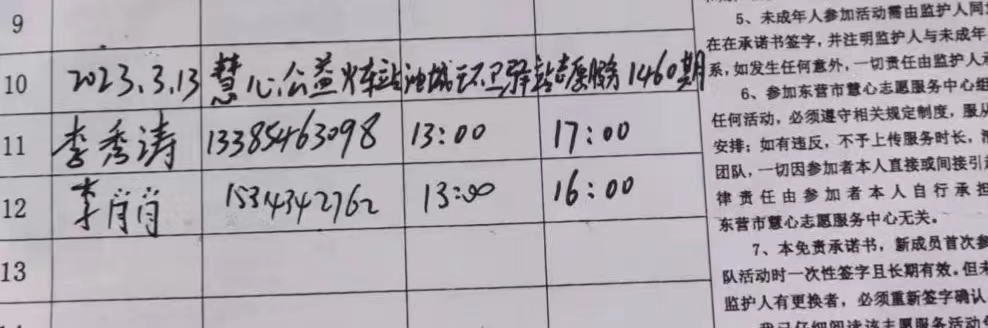 9
10 2023.3.13 慧心公益火车站油城环卫驿站志愿服务1460期
11 李秀涛 13385463098 13:00 17:00
12 李肖肖 15314342762 13:00 16:00
13
5、未成年人参加活动需由监护人同
在在承诺书签字，并注明监护人与未成年
系，如发生任何意外，一切责任由监护人
6、参加东营市慧心志愿服务中心组
任何活动，必须遵守相关规定制度，服从
安排；如有违反，不予上传服务时长，
团队，一切因参加者本人直接或间接引起
律责任由参加者本人自行承担
东营市慧心志愿服务中心无关。
7、本免责承诺书，新成员首次参
队活动时一次性签字且长期有效。但未
监护人有更换者，必须重新签字确认
我已仔细阅读该志愿服务活动